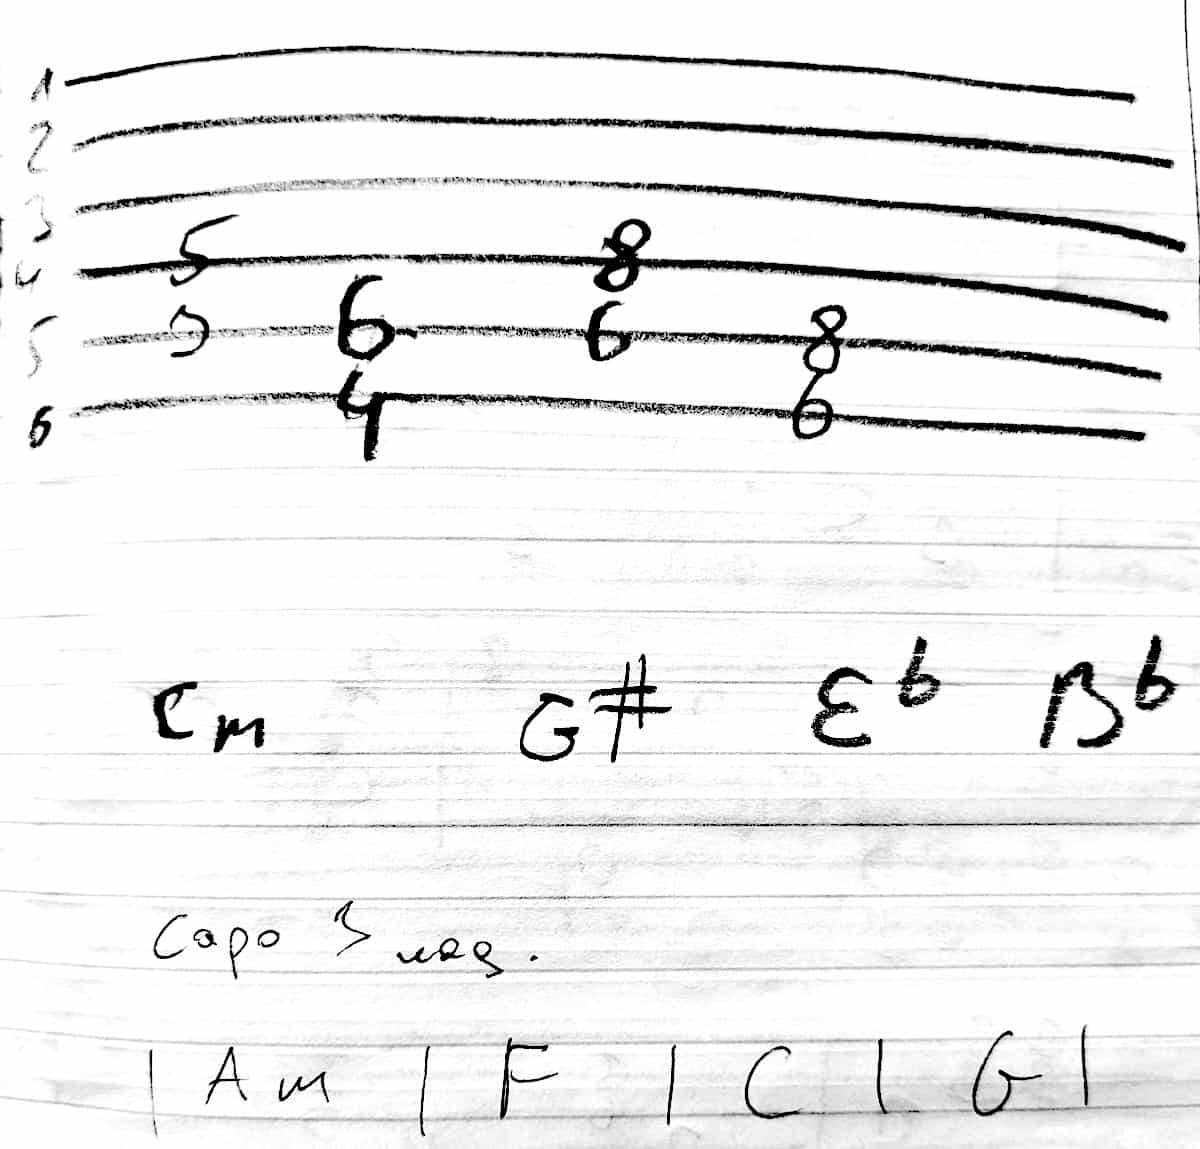 1
2
3
4 5 8
5 3 6 6 8
6 4 6
Cm G# Eb Bb
Capo 3 лад.
| Am | F | C | G |